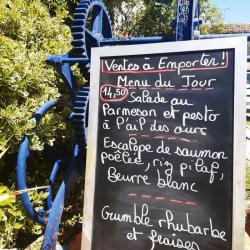 Ventes à Emporter !
Menu du Jour
14,50 Salade au
Parmesan et pesto
à l'ail des ours
Escalope de saumon
poêlée, riz pilaf,
Beurre blanc
Gumble rhubarbe
et fraises